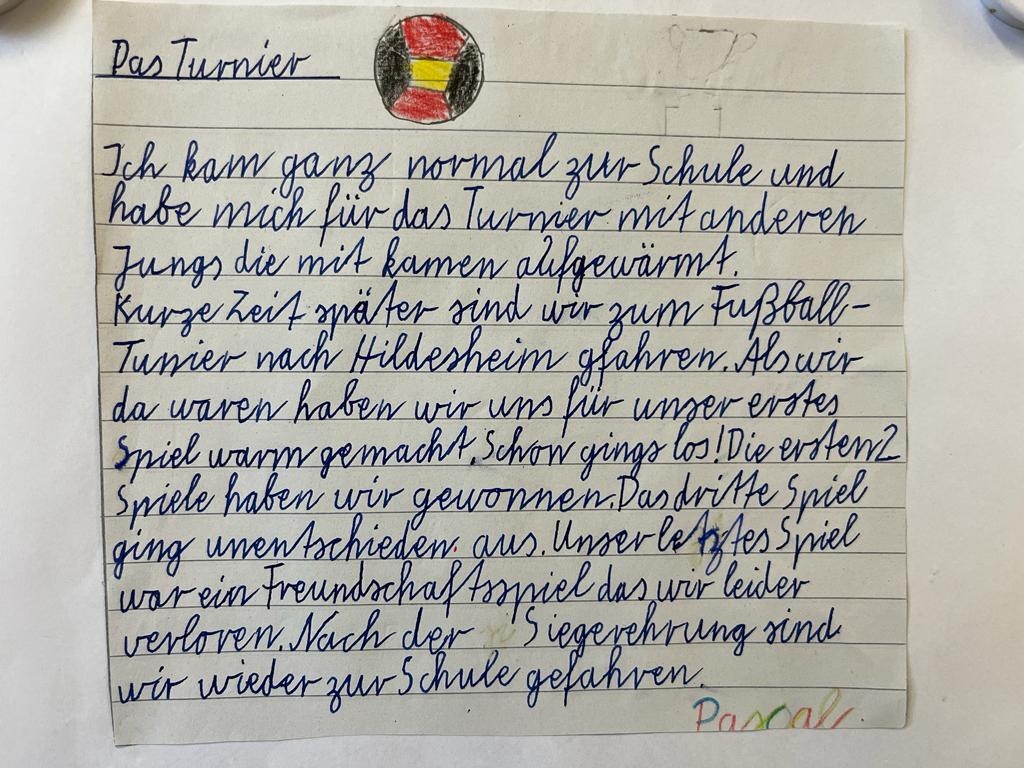 Das Turnier
Ich kam ganz normal zur Schule und
habe mich für das Turnier mit anderen
Jungs die mit kamen aufgewärmt.
Kurze Zeit später sind wir zum Fußball-
Tunier nach Hildesheim gfahren. Als wir
da waren haben wir uns für unser erstes
Spiel warm gemacht. Schon gings los! Die ersten 2
Spiele haben wir gewonnen. Das dritte Spiel
ging unentschieden. aus. Unser letztes Spiel
war ein Freundschaftsspiel das wir leider
verloren. Nach der Siegerehrung sind
wir wieder zur Schule gefahren.
Pascal